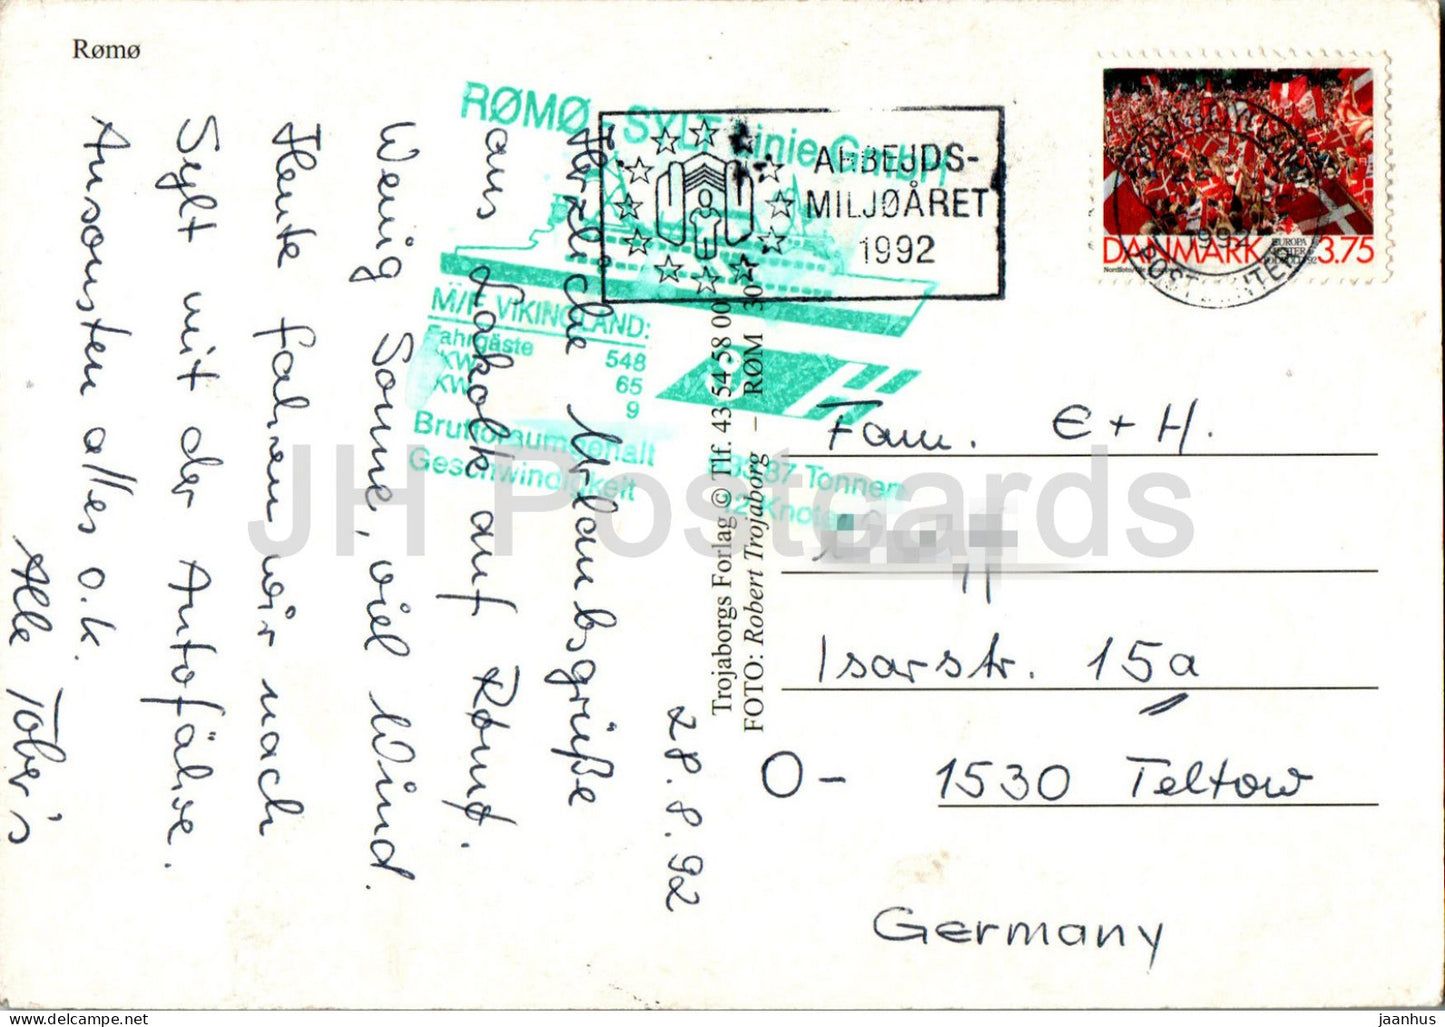 Rømø
RØMØ - SYLT Linie GmbH
M/F VIKINGLAND:
Fahrgäste 548
KW 65
KW 9
Bruttoraumgehalt
Geschwindigkeit
Tonnen
12 Knoten
ARBEJDS-
MILJØÅRET
1992
DANMARK 3.75
EUROPA
1992
POSTCENTER
28.8.92
Herzliche Urlaubsgrüße
aus Lakolk auf Rømø.
Wenig Sonne, viel Wind.
Heute fahren wir nach
Sylt mit der Autofähre.
Ansonsten alles o.k.
Alle Tober's
Trojaborgs Forlag © Tlf. 43 54 58 00
FOTO: Robert Trojaborg – RØM 30
Fam. E + H.
Isarstr. 15a
O- 1530 Teltow
Germany
JH Postcards
jaanhus